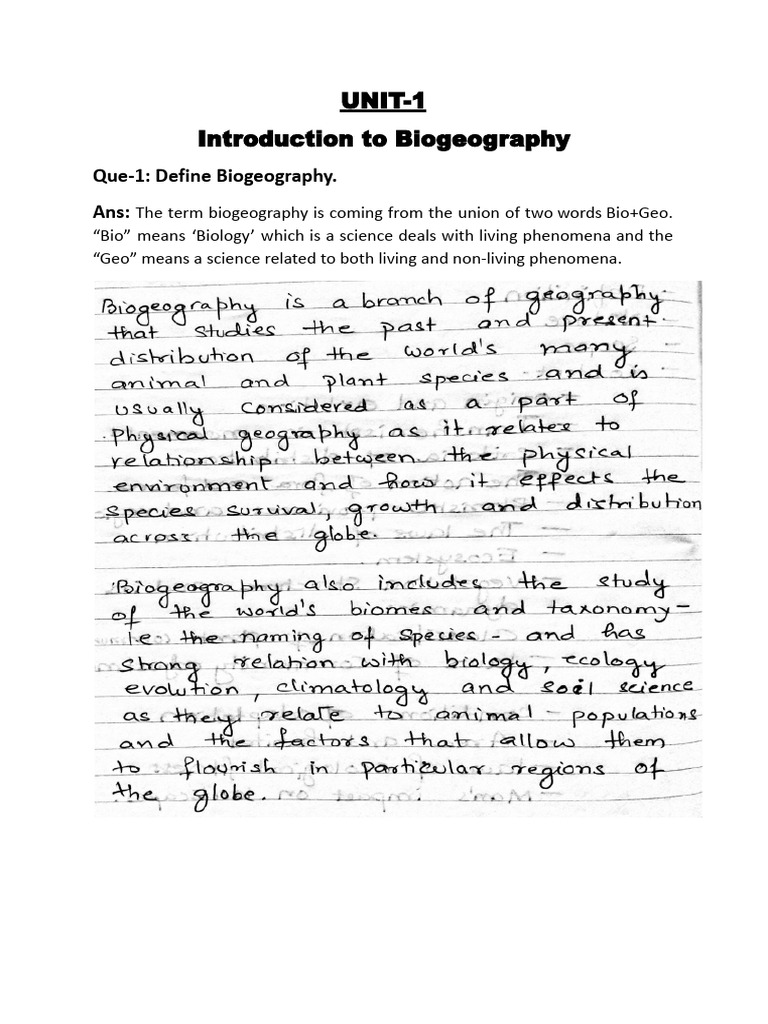 UNIT-1
Introduction to Biogeography
Que-1: Define Biogeography.
Ans: The term biogeography is coming from the union of two words Bio+Geo.
“Bio” means ‘Biology’ which is a science deals with living phenomena and the
“Geo” means a science related to both living and non-living phenomena.
Biogeography is a branch of geography
that studies the past and present
distribution of the world's many
animal and plant species and is
usually considered as a part of
physical geography as it relates to
relationship between the physical
environment and how it effects the
species suruval, growth and distribution
across the globe.
Biogeography also includes the study
of the world's biomes and taxonomy-
i.e the naming of species - and has
strong relation with biology, ecology
evolution, climatology and soil science
as they relate to animal populations
and the factors that allow them
to flourish in particular regions of
the globe.